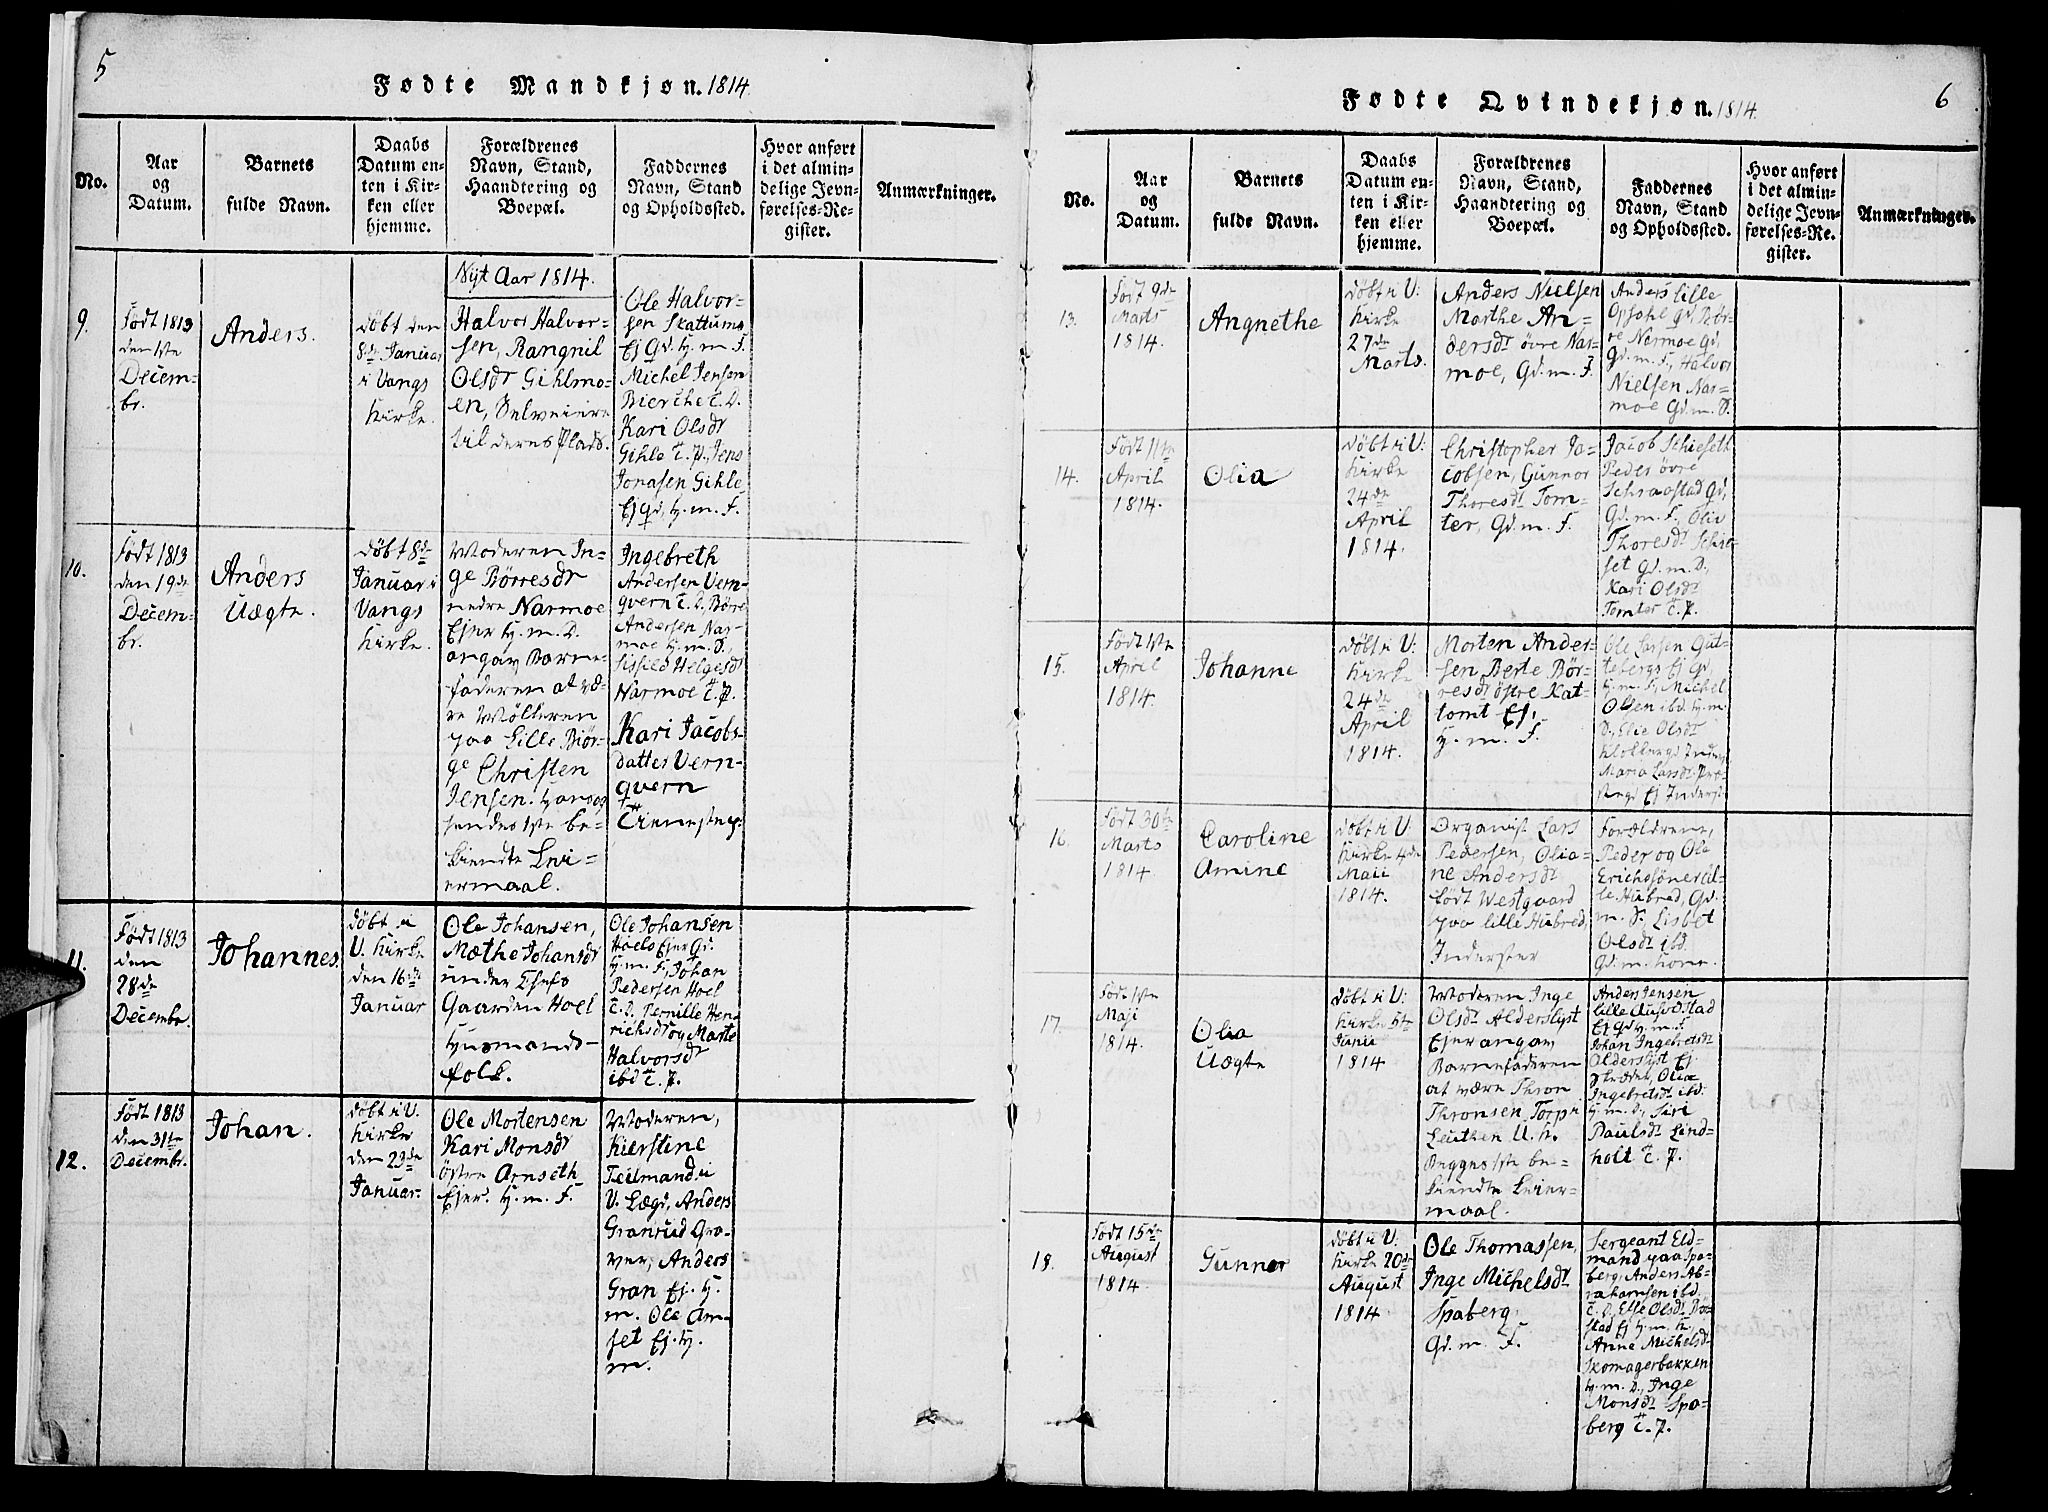 5
Fødte Mandkjøn. 1814
No.
Aar
og
Datum.
Barnets
fulde Navn.
Daabs
Datum en-
ten i Kir-
ken eller
hjemme.
Forældrenes
Navn, Stand,
Haandtering og
Boepæl.
Faddernes
Navn, Stand
og Opholdssted.
Hvor anført
i det almin-
delige Jevn-
førelses-Re-
gister.
Anmærkninger.
Nyt Aar 1814.
9.
Født 1813
den 1ste
Decem-
br.
Anders.
døbt den
8de Januar
i Vangs
Kirke.
Halvor Halvor-
sen, Rangnil
Olsdr Gihlmo-
en, Selveiere
til deres Plads.
Ole Halvor-
sen Skattums
Ej Gd. h. m. F.
Michel Jensen
Bierche t. D.
Kari Olsdr
Gihle t. P., Jens
Jonasen Gihle
Ej gd, h. m. F.
10.
Født 1813
den 19de
Decem-
br.
Anders
Uægte.
døbt 8de
Januar i
Vangs
Kirke.
Moderen In-
ge Børresdr
nedre Narmoe
Ejer h. m. D.
angav Barne-
faderen at væ-
re Mølleren
paa Lille Biør-
ge Christen
Jensen.
sendes 1ste be-
kiendte Leier-
ermaal.
Ingebreth
Andersen Vern-
qvern t. D, Børre
Andersen Nar-
moe h. m. S.,
Sissild Helgesdr
Narmoe t. P.
Kari Jacobs-
datter Vern-
qvern
Tieneste p.
11.
Født 1813
den
28de
Decembr.
Johannes.
døbt i
V. Kirke
den 16de
Januar
Ole Johansen,
Mæthe Johansdr
under
Gaarden Hoel
Husmands-
folk.
Ole Johansen
Hoels Ejer Gd.
h. m. F., Johan
Pedersen Hoel
t. D. Pernille Hen-
richsdr og Marte
Halvorsdr
ibd t. P.
12.
Født 1813
den 31te
Decembr.
Johan.
døbt i V.
Kirke
den 23de
Januar.
Ole Mortensen
Kari Monsdr
östre Arnseth
Ejer. h. m. F.
Moderen,
Kierstine
Teilmand i
V. Lægd, Anders
Granrud Gra-
ver, Anders
Gran Ej. h.
m. Ole Arn-
set Ej. h.
m.
6
Fødte Qvindekjøn. 1814.
No.
Aar
og
Datum.
Barnets
fulde Navn.
Daabs
Datum en-
ten i Kir-
ken eller
hjemme.
Forældrenes
Navn, Stand,
Haandtering og
Boepæl.
Faddernes
Navn, Stand
og Opholdssted.
Hvor anført
i det almin-
delige Jevn-
førelses-Re-
gister.
Anmærkninger.
13.
Født 9de
Marts
1814.
Angnethe
døbt i V:
Kirke
27de
Marts.
Anders Nielsen
Marthe An-
dersdr øvre Nar-
moe, Gd. m. F.
Anders Lille
Opsahl gd, Bør-
re Narmoe Gd,
Gd. m. F., Halvor
Nielsen Nar-
moe Gd. m. S.
14.
Født 11te
April
1814.
Olia
døbt i V:
Kirke
24de
April
1814.
Christopher Ja-
cobsen, Gunnor
Thoresdr Tom-
ter, Gd. m. F.
Jacob Schieseth
Peder øvre
Schraastad Gd,
Gd. m. F., Oliv
Thoresdr Schie-
set Gd. m. D.,
Kari Olsdr
Tomter t. P.
15.
Født 1ste
April
1814.
Johanne
døbt i V:
Kirke
24de
April
1814.
Morten Ander-
sen Berte Bør-
resdr östre Kat-
tomt Ej,
h. m. F.
Ole Larsen Gut-
tebergs Ej Gd,
h. m. F, Michel
Olsen ibd. h. m.
D, Elie Olsdr
Maria Larsdr
Ej Inderst
16.
Født 30te
Marts
1814.
Caroline
Amine
døbt i V:
Kirke 4de
Maii
1814.
Organist Lars
Pedersen, Olia-
ne Andersdr
født Westgaard
paa lille Hubred,
Inderster
Forældrene,
Peder og Ole
Erichssöner lil-
le Hubred, Gd.
m. S. Lisbet
Olsdr ibd.
Gd. m. Kone.
17.
Født 1ste
Maji
1814.
Olia
Uægte
døbt i V:
Kirke 5te
Junii
1814
Moderen Inge
Olsdr Alderslyst
Ejer angav
Barnefaderen
at være Thron
Thronsen Torp i
Leuthen U. K.
Begges 1ste be-
kiendte Leier-
maal.
Anders Jensen
lille
Ej gd h. m. F.
Johan Ingebretsdr
Alderslyst Ej.
Olia
Ingebretsdr ibd.
h. m. D, Siri
Paulsdr Lind-
holt t. P.
18.
Født 15de
August
1814.
Gunnor
døbt i V:
Kirke 20de
August
1814.
Ole Thomassen,
Inge Michelsdr
Spaberg.
Gd. m. F.
Sergeant Eld-
mand paa Spa-
berg, Anders Ab-
rahamsen ibd.
t. D, Else Olsdr Bör-
stad Ej h. m. K.
Anne Michelsdr
Skomagerbakken
h. m. D., Inge
Monsdr Spa-
berg t. P.